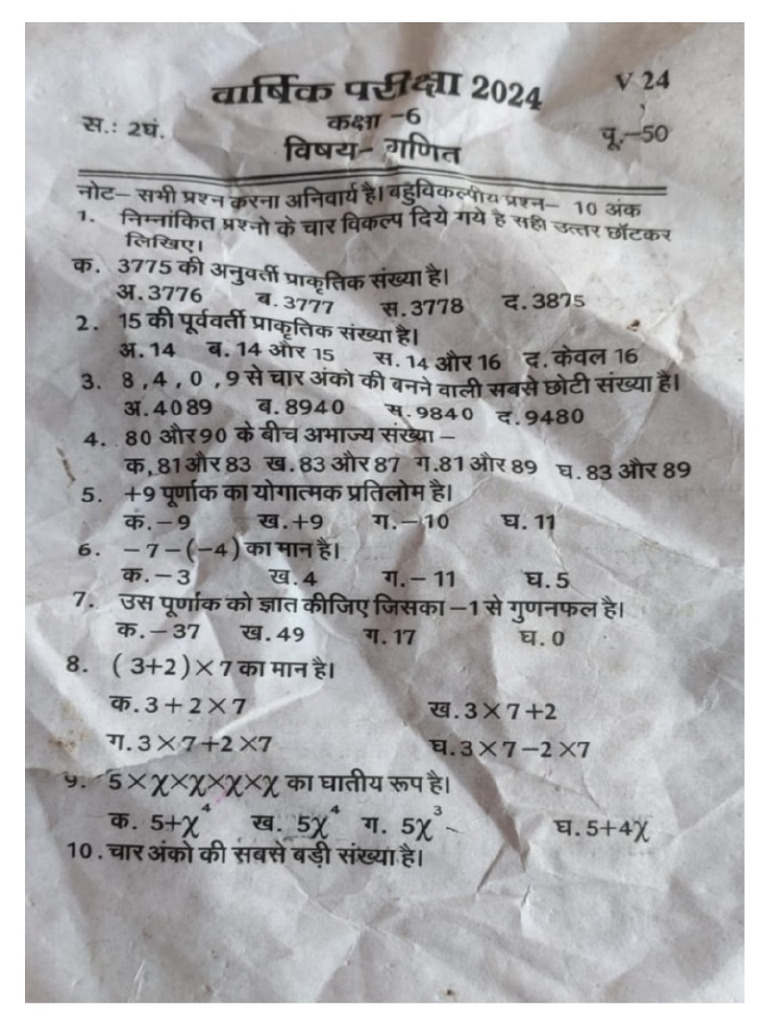 वार्षिक परीक्षा 2024
V 24
स.: 2घं.
कक्षा -6
पू.-50
विषय- गणित
नोट- सभी प्रश्न करना अनिवार्य है। बहुविकल्पीय प्रश्न- 10 अंक
1. निम्नांकित प्रश्नो के चार विकल्प दिये गये है सही उत्तर छाँटकर
लिखिए।
क. 3775 की अनुवर्ती प्राकृतिक संख्या है।
अ.3776 ब.3777 स.3778 द.3875
2. 15 की पूर्ववर्ती प्राकृतिक संख्या है।
अ.14 ब. 14 और 15 स.14 और 16 द. केवल 16
3. 8 , 4 , 0 , 9 से चार अंको की बनने वाली सबसे छोटी संख्या है।
अ.4089 ब.8940 स.9840 द.9480
4. 80 और 90 के बीच अभाज्य संख्या –
क.81 और 83 ख.83 और 87 ग.81 और 89 घ.83 और 89
5. +9 पूर्णाक का योगात्मक प्रतिलोम है।
क.–9 ख.+9 ग.–10 घ. 11
6. –7–(–4) का मान है।
क.–3 ख.4 ग.–11 घ.5
7. उस पूर्णाक को ज्ञात कीजिए जिसका –1 से गुणनफल है।
क.–37 ख.49 ग.17 घ.0
8. ( 3+2 ) × 7 का मान है।
क.3 + 2 × 7 ख.3 × 7 + 2
ग.3 × 7 + 2 × 7 घ.3 × 7 – 2 × 7
9. 5 × χ × χ × χ × χ का घातीय रूप है।
क. 5+χ⁴ ख. 5χ⁴ ग. 5χ³ घ.5+4χ
10. चार अंको की सबसे बड़ी संख्या है।